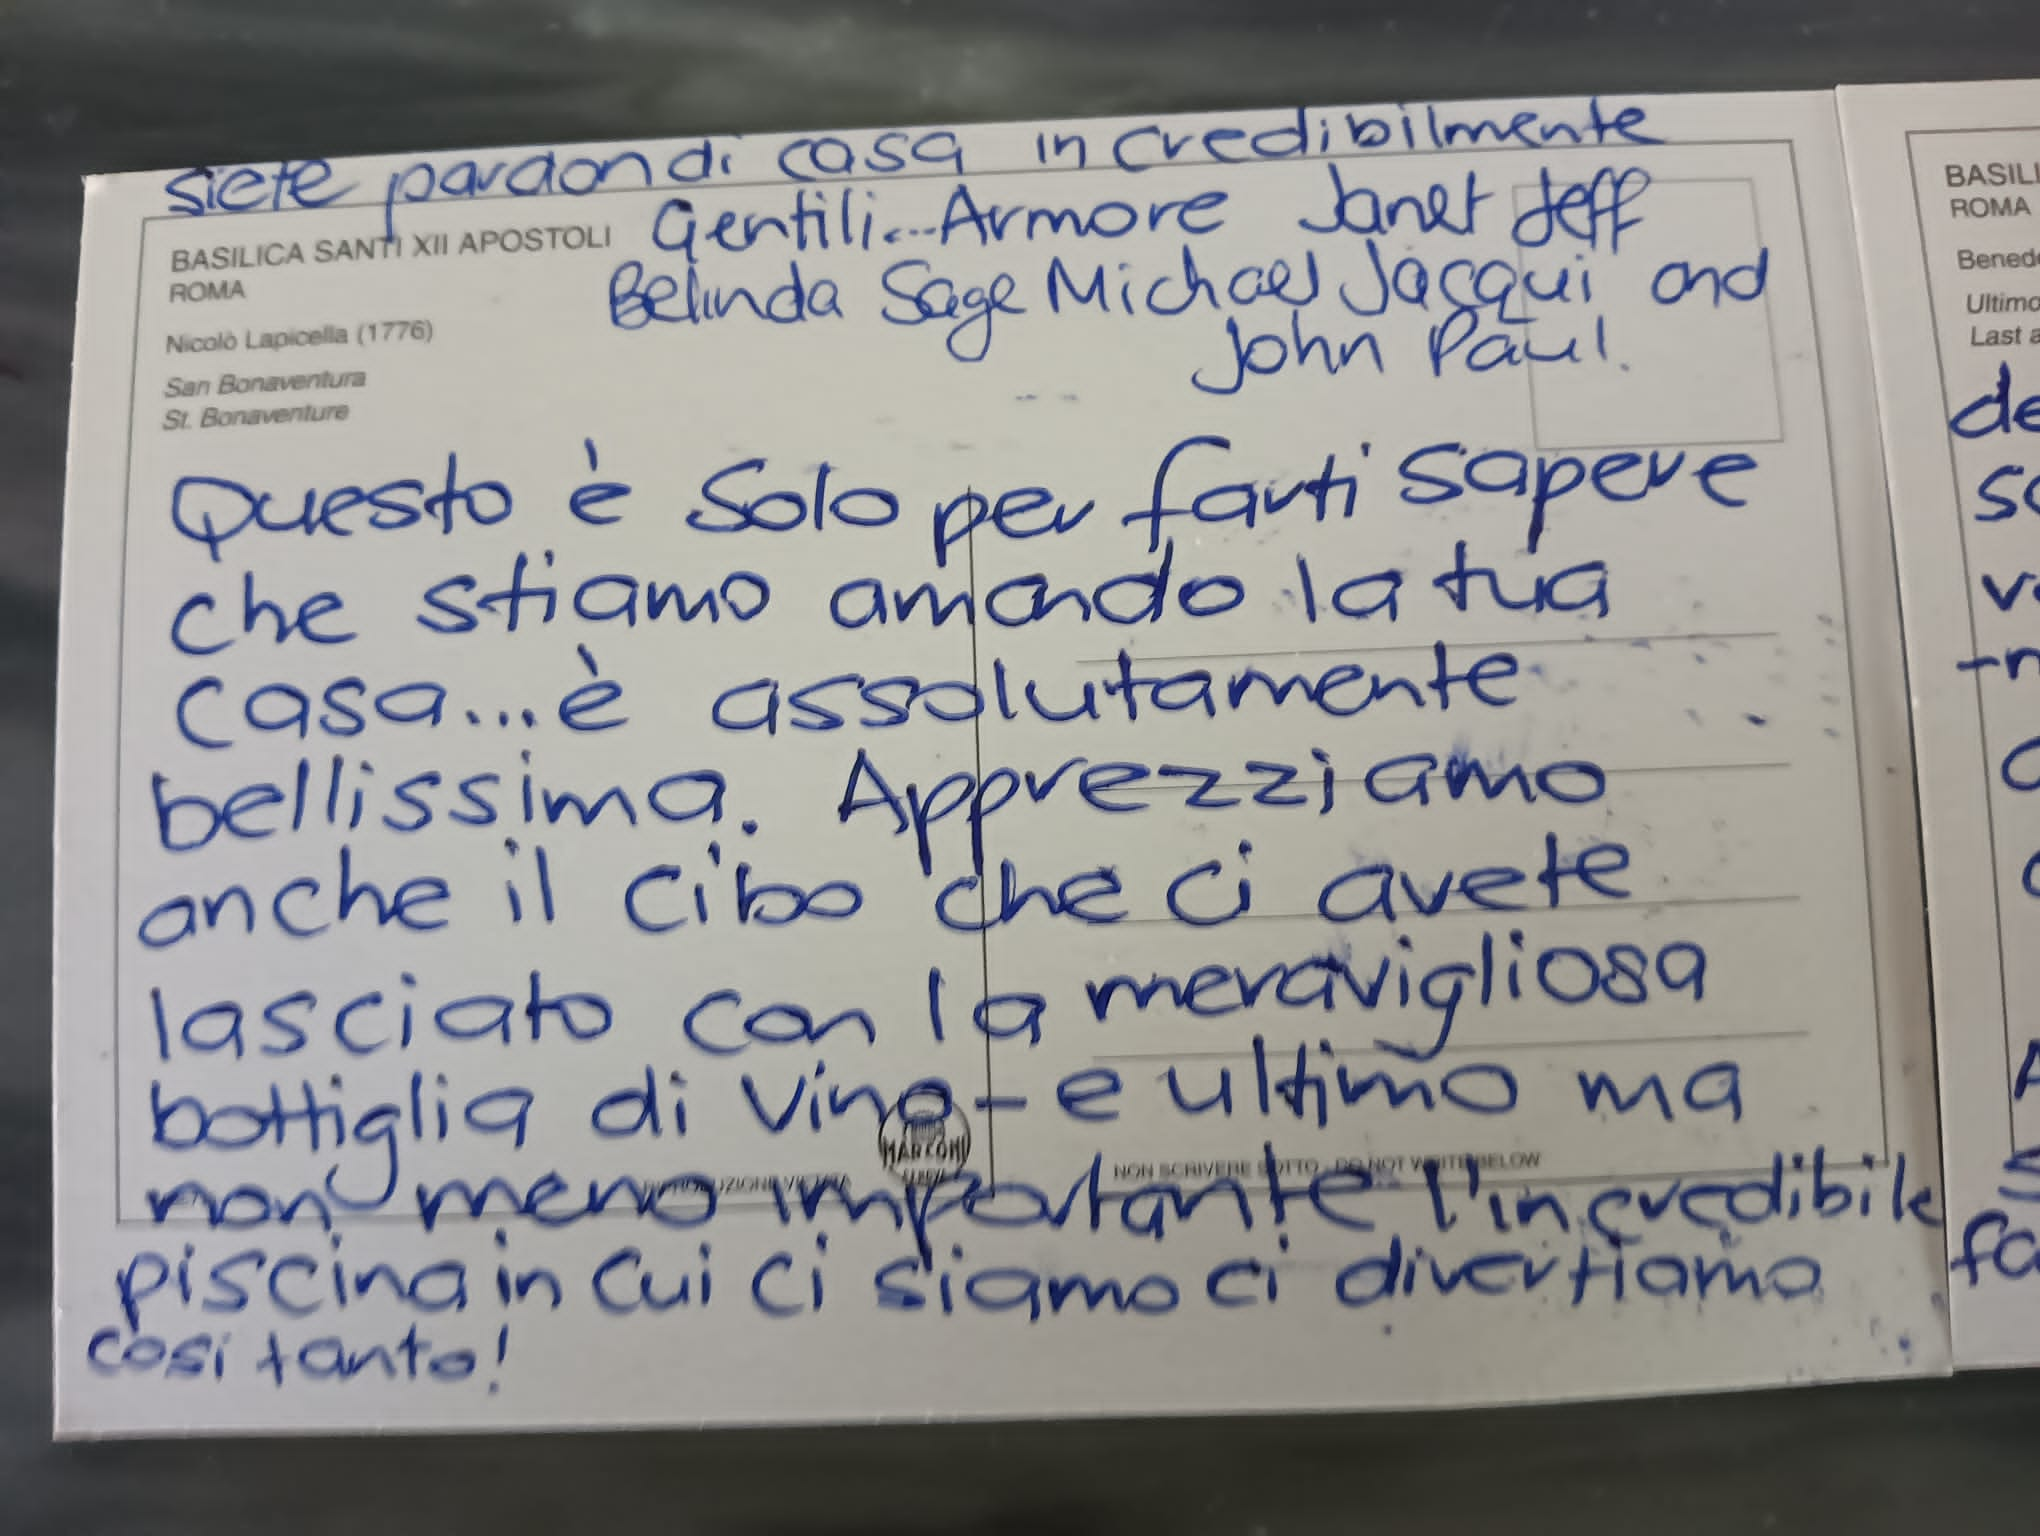 siete pardon di casa incredibilmente
Gentili...Armore Janet Jeff
Belinda Sage Michael Jacqui and
John Paul.
BASILICA SANTI XII APOSTOLI
ROMA
Nicolò Lapicella (1776)
San Bonaventura
St. Bonaventure
Questo è solo per farti sapere
che stiamo amando la tua
casa...è assolutamente
bellissima. Apprezziamo
anche il cibo che ci avete
lasciato con la meravigliosa
bottiglia di vino - e ultimo ma
non meno importante l'incredibile
piscina in cui ci siamo ci divertiamo
cosi tanto!
RIPRODUZIONE VIETATA
MARCONI
NON SCRIVERE SOTTO - DO NOT WRITE BELOW
BASILI
ROMA
Bened
Ultimo
Last a
de
so
fa